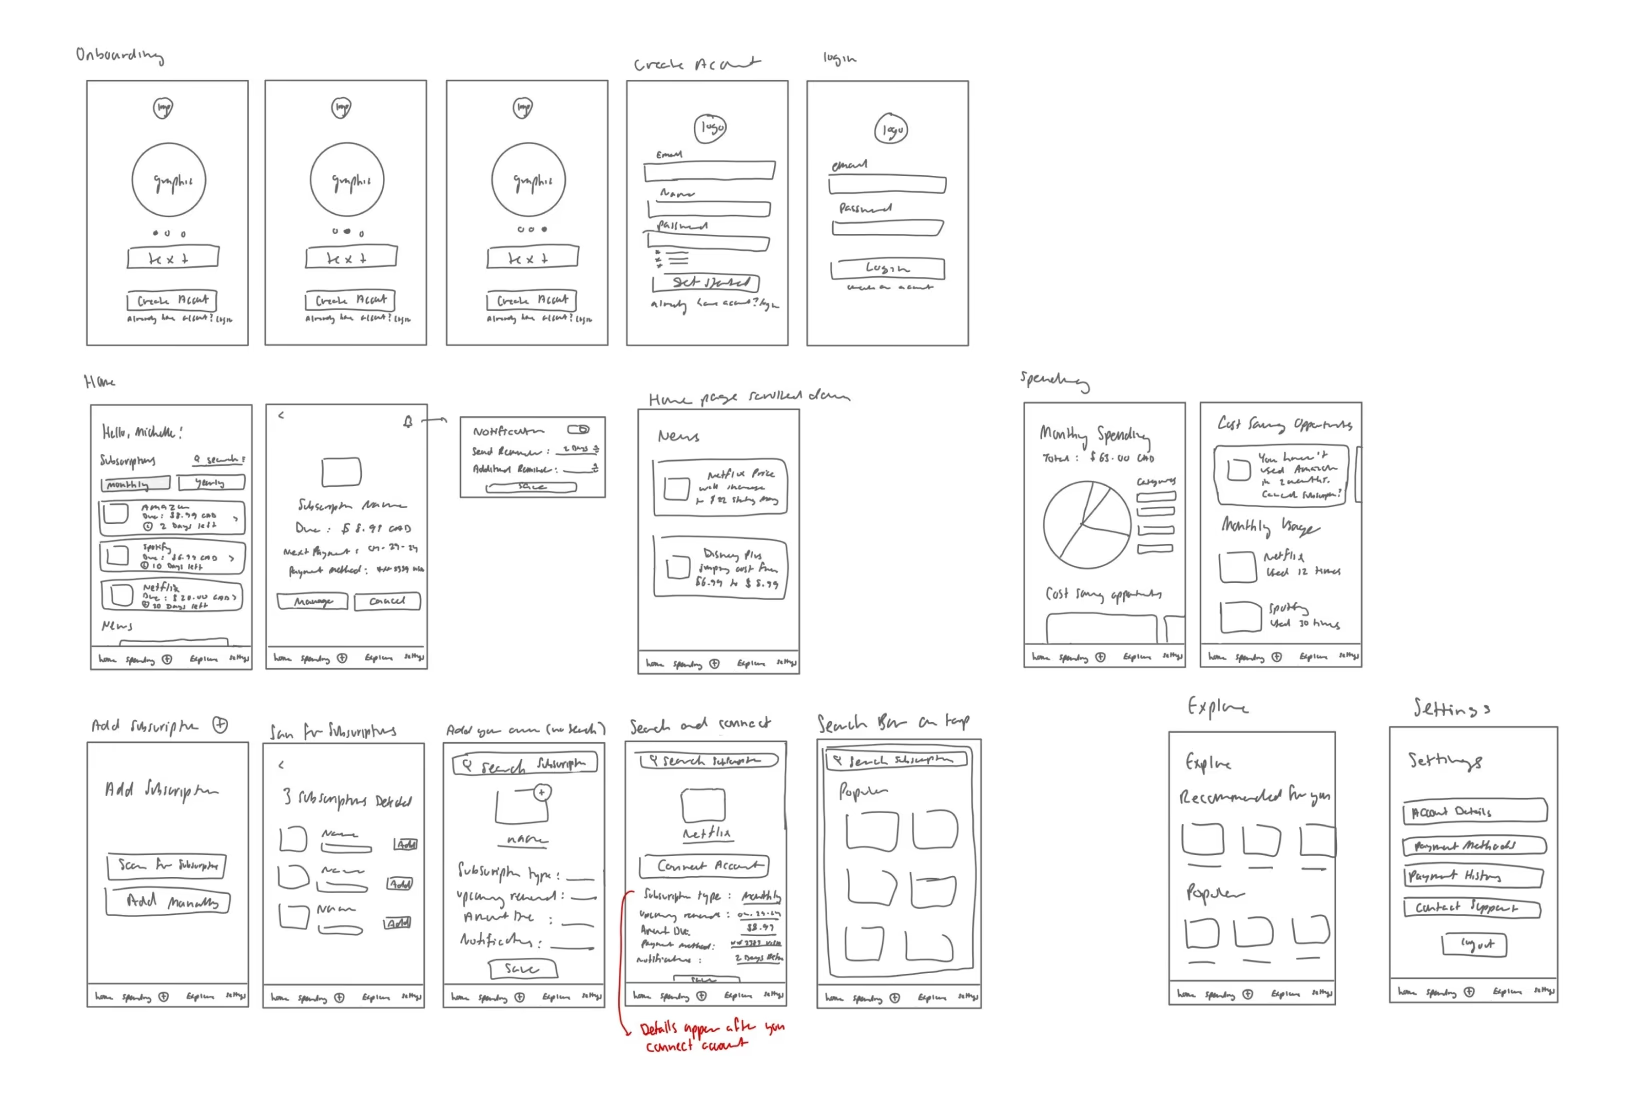 Onboarding
logo
graphic
text
Create Account
Already have account? Login
logo
graphic
text
Create Account
Already have account? Login
logo
graphic
text
Create Account
Already have account? Login
Create Account
logo
Email
Name
Password
Get Started
Already have account? Login
login
logo
email
Password
Login
create an account
Home
Hello, Michelle!
Subscriptions
search
Monthly
Yearly
Amazon
Due: $8.99 CAD
2 Days left
>
Spotify
Due: $6.99 CAD
10 Days left
>
Netflix
Due: $20.00 CAD
30 Days left
>
News
home spending + Explore settings
<
Subscription Name
Due: $8.99 CAD
Next Payment: 04-29-24
Payment method:
Manage
Cancel
home spending + Explore settings
Notification
Send Reminder: 2 Days
Additional Reminder:
Save
Home page scrolled down
News
Netflix Price
will increase
to $22 starting May
Disney Plus
jumping cost from
$6.99 to $8.99
home spending + Explore settings
Spending
Monthly Spending
Total: $65.00 CAD
Categories
Cost saving opportunities
home spending + Explore settings
Cost Saving Opportunities
You haven't
used Amazon
in 2 months.
Cancel subscription?
Monthly Usage
Netflix
Used 12 times
Spotify
Used 30 times
home spending + Explore settings
Add Subscription +
Add Subscription
Scan for Subscription
Add Manually
home spending + Explore settings
Scan for Subscriptions
<
3 Subscriptions Detected
Name
Add
Name
Add
Name
Add
home spending + Explore settings
Add your own (no search)
Search Subscription
+
name
Subscription type:
upcoming renewal:
Amount Due:
Notification:
Save
home spending + Explore settings
Search and connect
Search Subscription
Netflix
Connect Account
Subscription type: Monthly
Upcoming renewal: 04.29.24
Amount Due: $8.99
Payment method:
notifications: 2 Days Before
Save
home spending + Explore settings
Details appear after you
connect account
Search Bar on tap
Search Subscription
Popular
home spending + Explore settings
Explore
Explore
Recommended for you
Popular
home spending + Explore settings
Settings
Settings
Account Details
Payment Methods
Payment History
Contact Support
logout
home spending + Explore settings